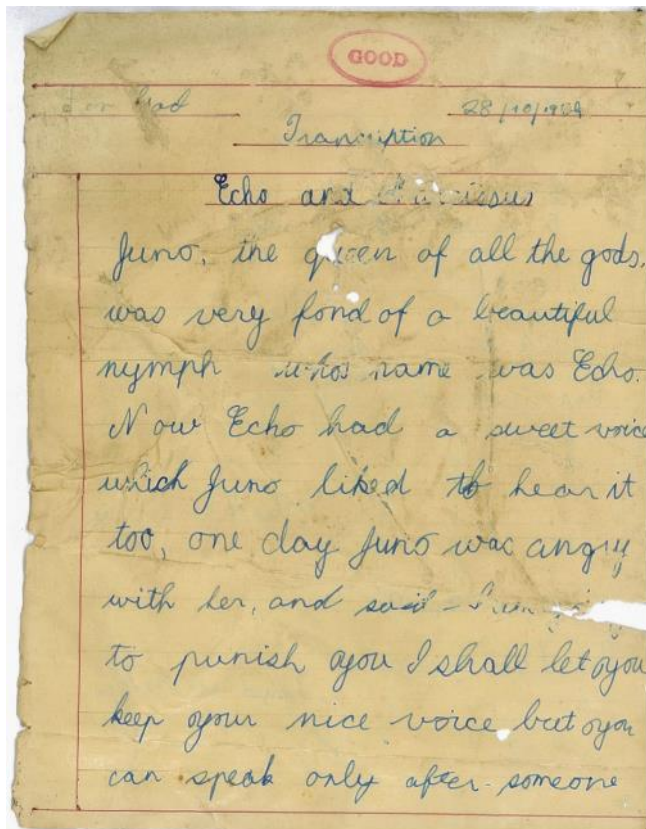 GOOD
28/10/19
Transcription
Echo and
Juno, the queen of all the gods,
was very fond of a beautiful
nymph whos name was Echo.
Now Echo had a sweet voice
which Juno liked to hear it
too, one day Juno was angry
with her, and said
to punish you I shall let you
keep your nice voice but you
can speak only after someone